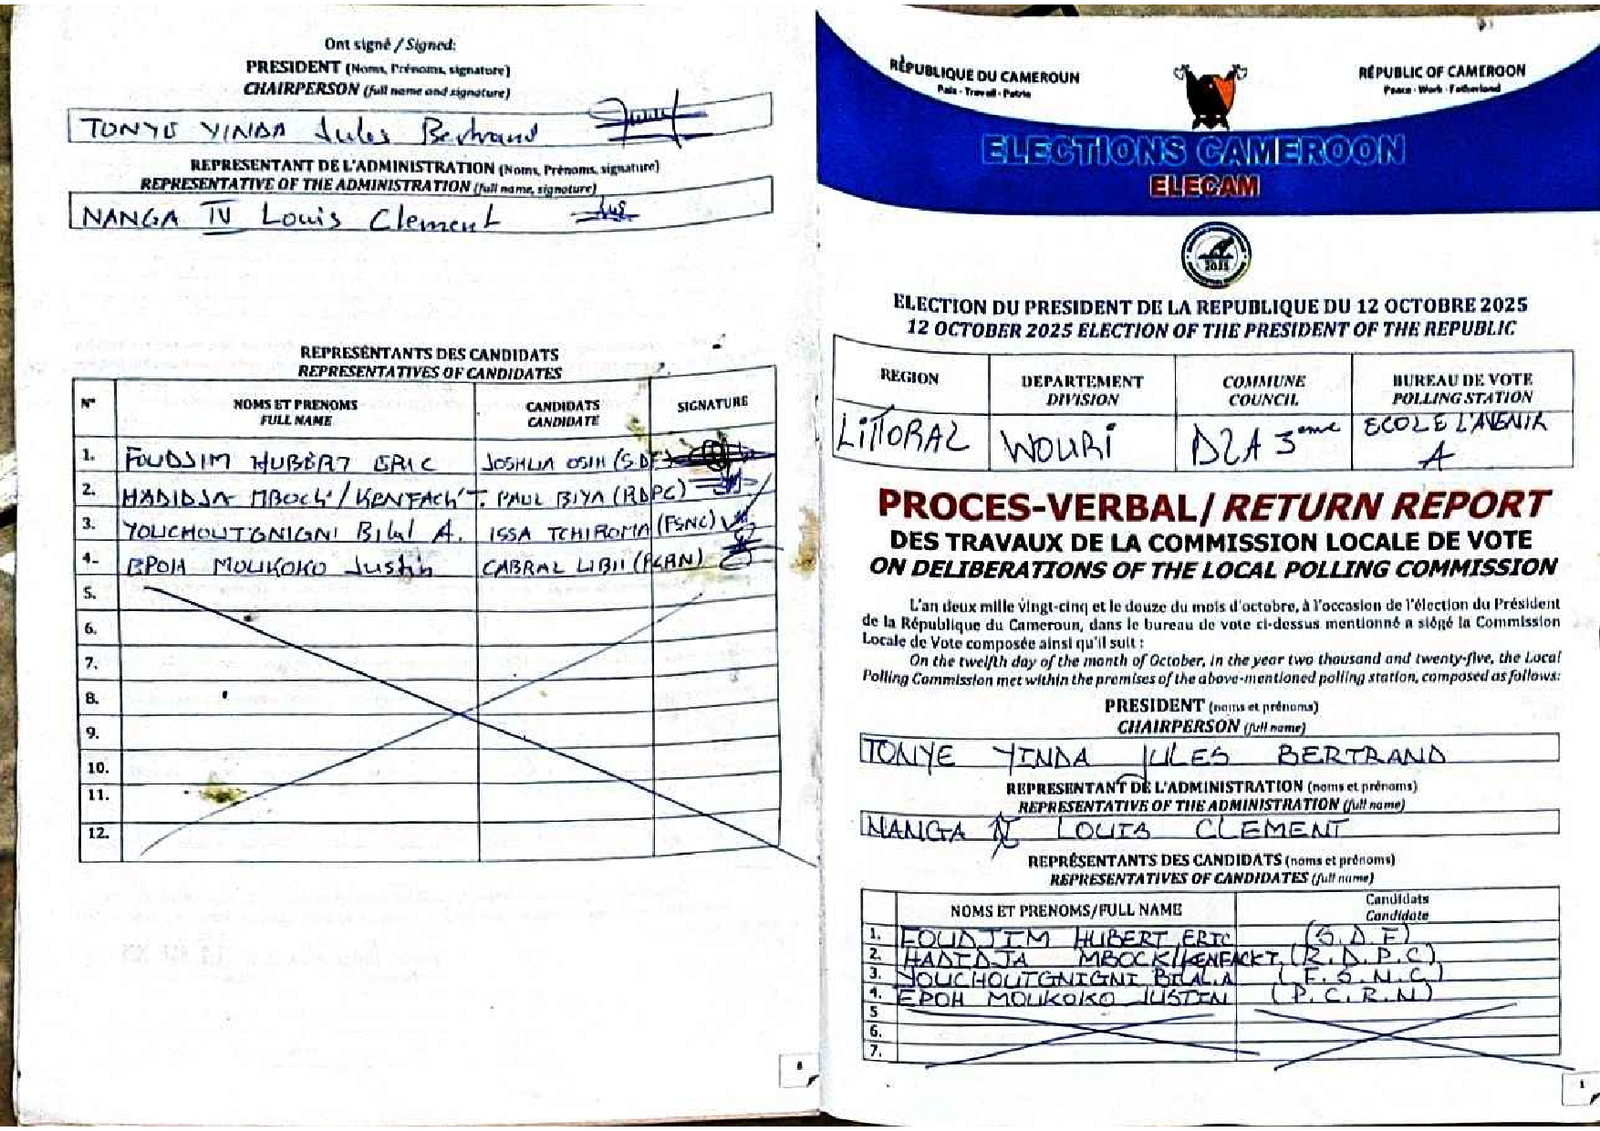 Ont signé / Signed:
PRESIDENT (Noms, Prénoms, signature)
CHAIRPERSON (full name and signature)
TONYE YINDA Jules Bertrand
REPRESENTANT DE L'ADMINISTRATION (Noms, Prénoms, signature)
REPRESENTATIVE OF THE ADMINISTRATION (full name, signature)
NANGA IV Louis Clement
REPRESENTANTS DES CANDIDATS
REPRESENTATIVES OF CANDIDATES
N° NOMS ET PRENOMS FULL NAME CANDIDATS CANDIDATE SIGNATURE
1. FOUDJIM HUBERT ERIC JOSHUA OSIH (SDF)
2. HADIDJA MBOCK/KENFACK T. PAUL BIYA (RDPC)
3. YOUCHOUTGNIGNI Bilal A. ISSA TCHIROMA (FSNC)
4. EPOH MOUKOKO Justin CABRAL LIBII (PCRN)
5.
6.
7.
8.
9.
10.
11.
12.
8
RÉPUBLIQUE DU CAMEROUN
Paix - Travail - Patrie
REPUBLIC OF CAMEROON
Peace - Work - Fatherland
ELECTIONS CAMEROON
ELECAM
2025
ELECTION DU PRESIDENT DE LA REPUBLIQUE DU 12 OCTOBRE 2025
12 OCTOBER 2025 ELECTION OF THE PRESIDENT OF THE REPUBLIC
REGION DEPARTEMENT DIVISION COMMUNE COUNCIL BUREAU DE VOTE POLLING STATION
LITTORAL WOURI DLA 3eme ECOLE L'AVENIR A
PROCES-VERBAL/ RETURN REPORT
DES TRAVAUX DE LA COMMISSION LOCALE DE VOTE
ON DELIBERATIONS OF THE LOCAL POLLING COMMISSION
L'an deux mille vingt-cinq et le douze du mois d'octobre, à l'occasion de l'élection du Président
de la République du Cameroun, dans le bureau de vote ci-dessus mentionné a siégé la Commission
Locale de Vote composée ainsi qu'il suit :
On the twelfth day of the month of October, in the year two thousand and twenty-five, the Local
Polling Commission met within the premises of the above-mentioned polling station, composed as follows:
PRESIDENT (noms et prénoms)
CHAIRPERSON (full name)
TONYE YINDA JULES BERTRAND
REPRESENTANT DE L'ADMINISTRATION (noms et prénoms)
REPRESENTATIVE OF THE ADMINISTRATION (full name)
NANGA IV LOUIS CLEMENT
REPRÉSENTANTS DES CANDIDATS (noms et prénoms)
REPRESENTATIVES OF CANDIDATES (full name)
NOMS ET PRENOMS/FULL NAME Candidats Candidate
1. FOUDJIM HUBERT ERIC (S.D.F)
2. HADIDJA MBOCK/KENFACK T. (R.D.P.C)
3. YOUCHOUTGNIGNI BILAL.A (F.S.N.C)
4. EPOH MOUKOKO JUSTIN (P.C.R.N)
5
6.
7.
1